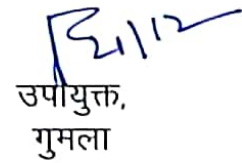 उपायुक्त,
गुमला